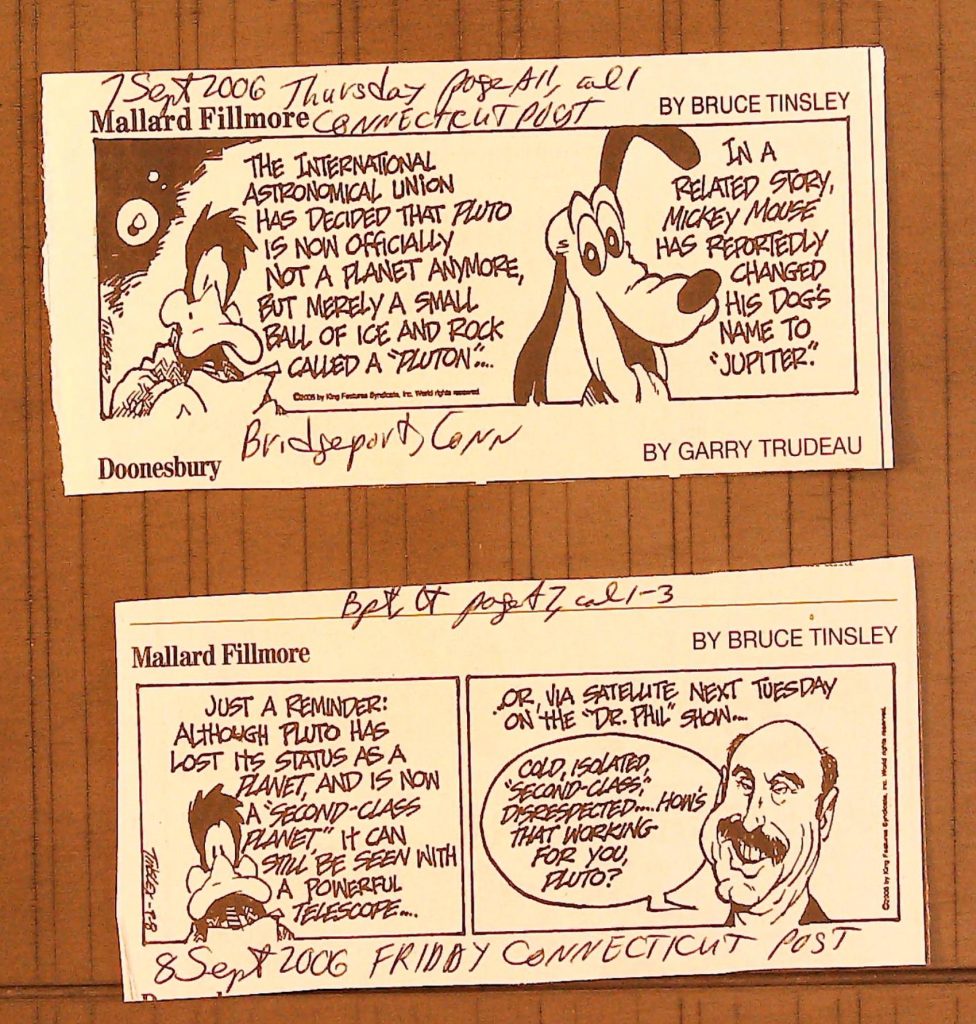 7 Sept 2006 Thursday page A11, col 1
Mallard Fillmore CONNECTICUT POST BY BRUCE TINSLEY
THE INTERNATIONAL
ASTRONOMICAL UNION
HAS DECIDED THAT PLUTO
IS NOW OFFICIALLY
NOT A PLANET ANYMORE,
BUT MERELY A SMALL
BALL OF ICE AND ROCK
CALLED A "PLUTON"...
©2006 by King Features Syndicate, Inc. World rights reserved.
IN A
RELATED STORY,
MICKEY MOUSE
HAS REPORTEDLY
CHANGED
HIS DOG'S
NAME TO
"JUPITER."
Bridgeport, Conn
Doonesbury BY GARRY TRUDEAU
Bpt, Ct page A7, col 1-3
Mallard Fillmore BY BRUCE TINSLEY
JUST A REMINDER:
ALTHOUGH PLUTO HAS
LOST ITS STATUS AS A
PLANET, AND IS NOW
A "SECOND-CLASS
PLANET," IT CAN
STILL BE SEEN WITH
A POWERFUL
TELESCOPE....
TINSLEY-9-8
...OR, VIA SATELLITE NEXT TUESDAY
ON THE "DR. PHIL" SHOW....
COLD, ISOLATED,
"SECOND-CLASS",
DISRESPECTED.... HOW'S
THAT WORKING
FOR YOU,
PLUTO?
©2006 by King Features Syndicate, Inc. World rights reserved.
8 Sept 2006 FRIDAY CONNECTICUT POST